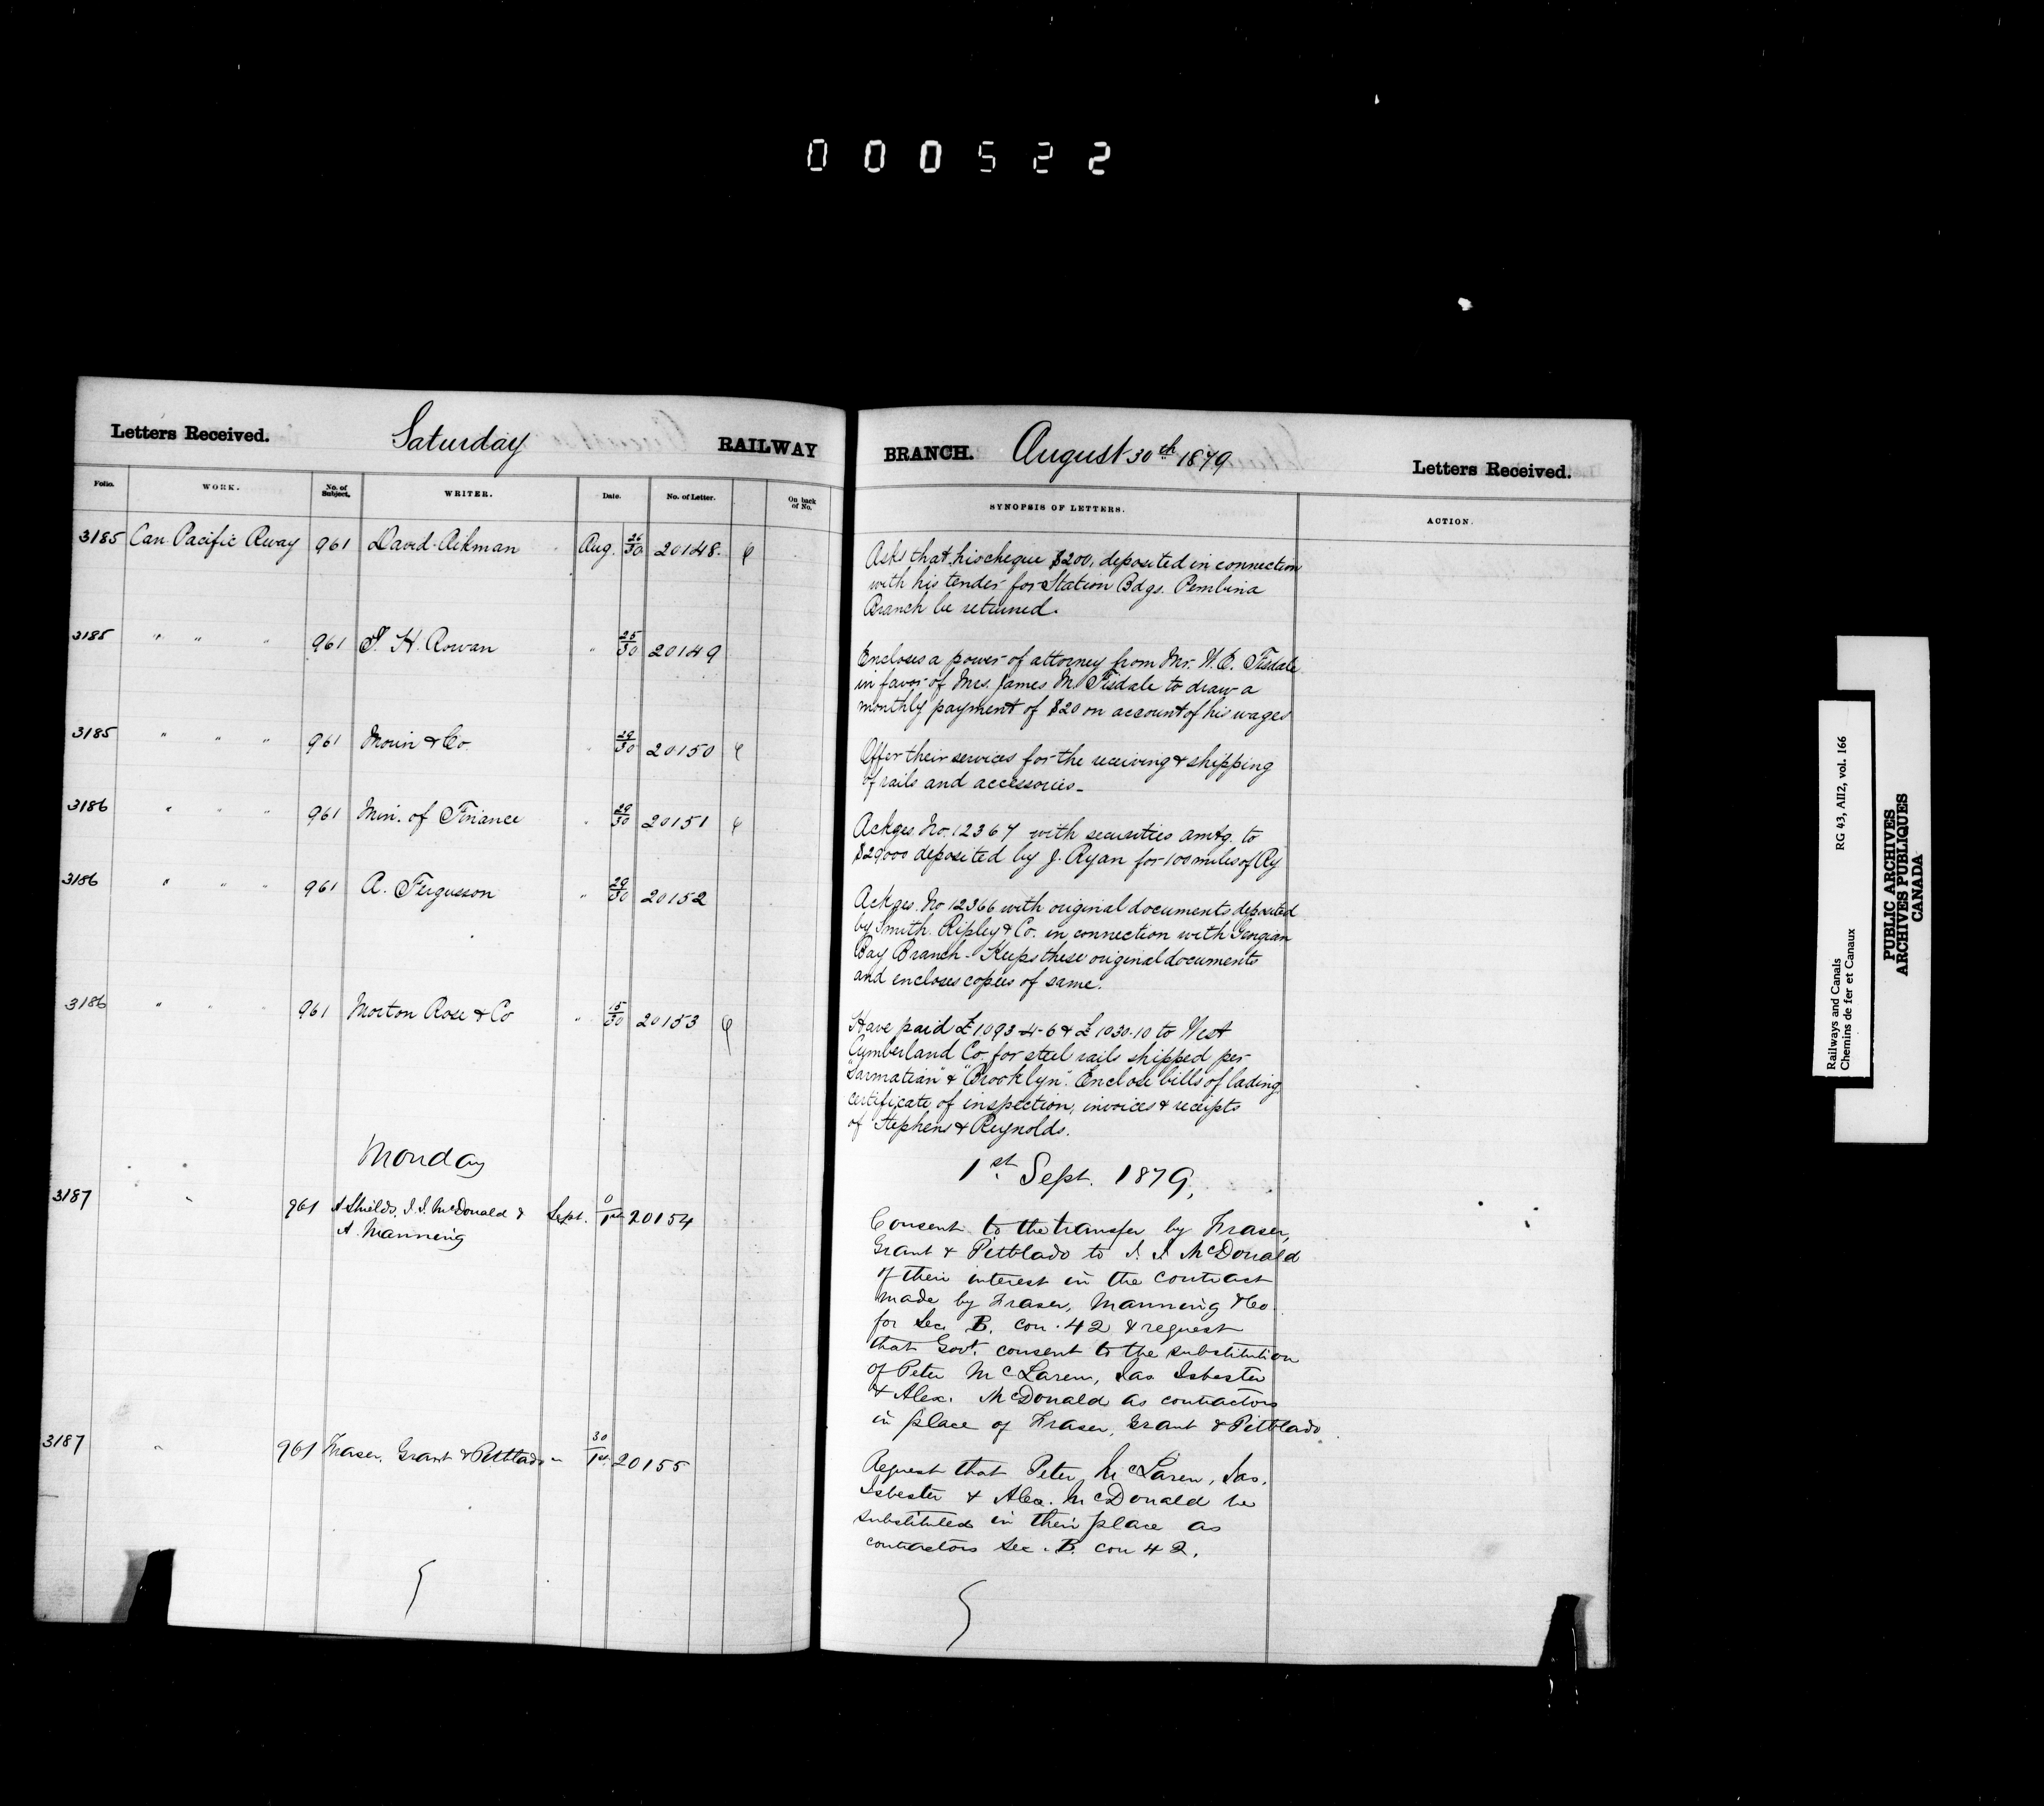 000522
Letters Received. Saturday RAILWAY
Folio. WORK. No. of Subject. WRITER. Date. No. of Letter. On back of No.
3185 Can Pacific Rway 961 David Aikman Aug. 26/30 20148.
3185 " " " 961 J. H. Rowan " 25/30 20149
3185 " " " 961 Morin & Co. " 29/30 20150
3186 " " " 961 Min. of Finance " 29/30 20151
3186 " " " 961 A. Fergusson " 29/30 20152
3186 " " " 961 Morton Rose & Co " 15/30 20153
Monday
3187 " 961 A Shields, J. J. McDonald & Sept. 0/1st 20154
A. Manning
3187 " 961 Fraser, Grant & Pitblado " 30/1st 20155
BRANCH. August 30th 1879 Letters Received.
SYNOPSIS OF LETTERS. ACTION.
Asks that his cheque $200, deposited in connection
with his tender for Station Bdgs. Pembina
Branch be returned.
Encloses a power of attorney from Mr. W. E. Tisdale
in favor of Mrs. James M. Tisdale to draw a
monthly payment of $20 on account of his wages
Offer their services for the receiving & shipping
of rails and accessories.
Ackges. No. 12367 with securities amtg. to
$20000 deposited by J. Ryan for 100 miles of Ry
Ackges. No 12366 with original documents deposited
by Smith. Ripley & Co. in connection with Georgian
Bay Branch - Keeps these original documents
and encloses copies of same.
Have paid £1093-4-6 & £1030.10 to West
Cumberland Co. for steel rails shipped per
"Sarmatian" & "Brooklyn". Enclose bills of lading,
certificate of inspection, invoices & receipts
of Stephens & Reynolds.
1st Sept. 1879,
Consent to the transfer by Fraser,
Grant & Pitblado to J. J. McDonald
of their interest in the contract
made by Fraser, Manning & Co.
for Sec. B. con. 42 & request
that Govt. consent to the substitution
of Peter McLaren, Jas Isbester
& Alex. McDonald as contractors
in place of Fraser, Grant & Pitblado.
Request that Peter McLaren, Jas.
Isbester & Alex. McDonald be
substituted in their place as
contractors Sec. B. con 42.
Railways and Canals
Chemins de fer et Canaux
RG 43, AII2, vol. 166
PUBLIC ARCHIVES
ARCHIVES PUBLIQUES
CANADA